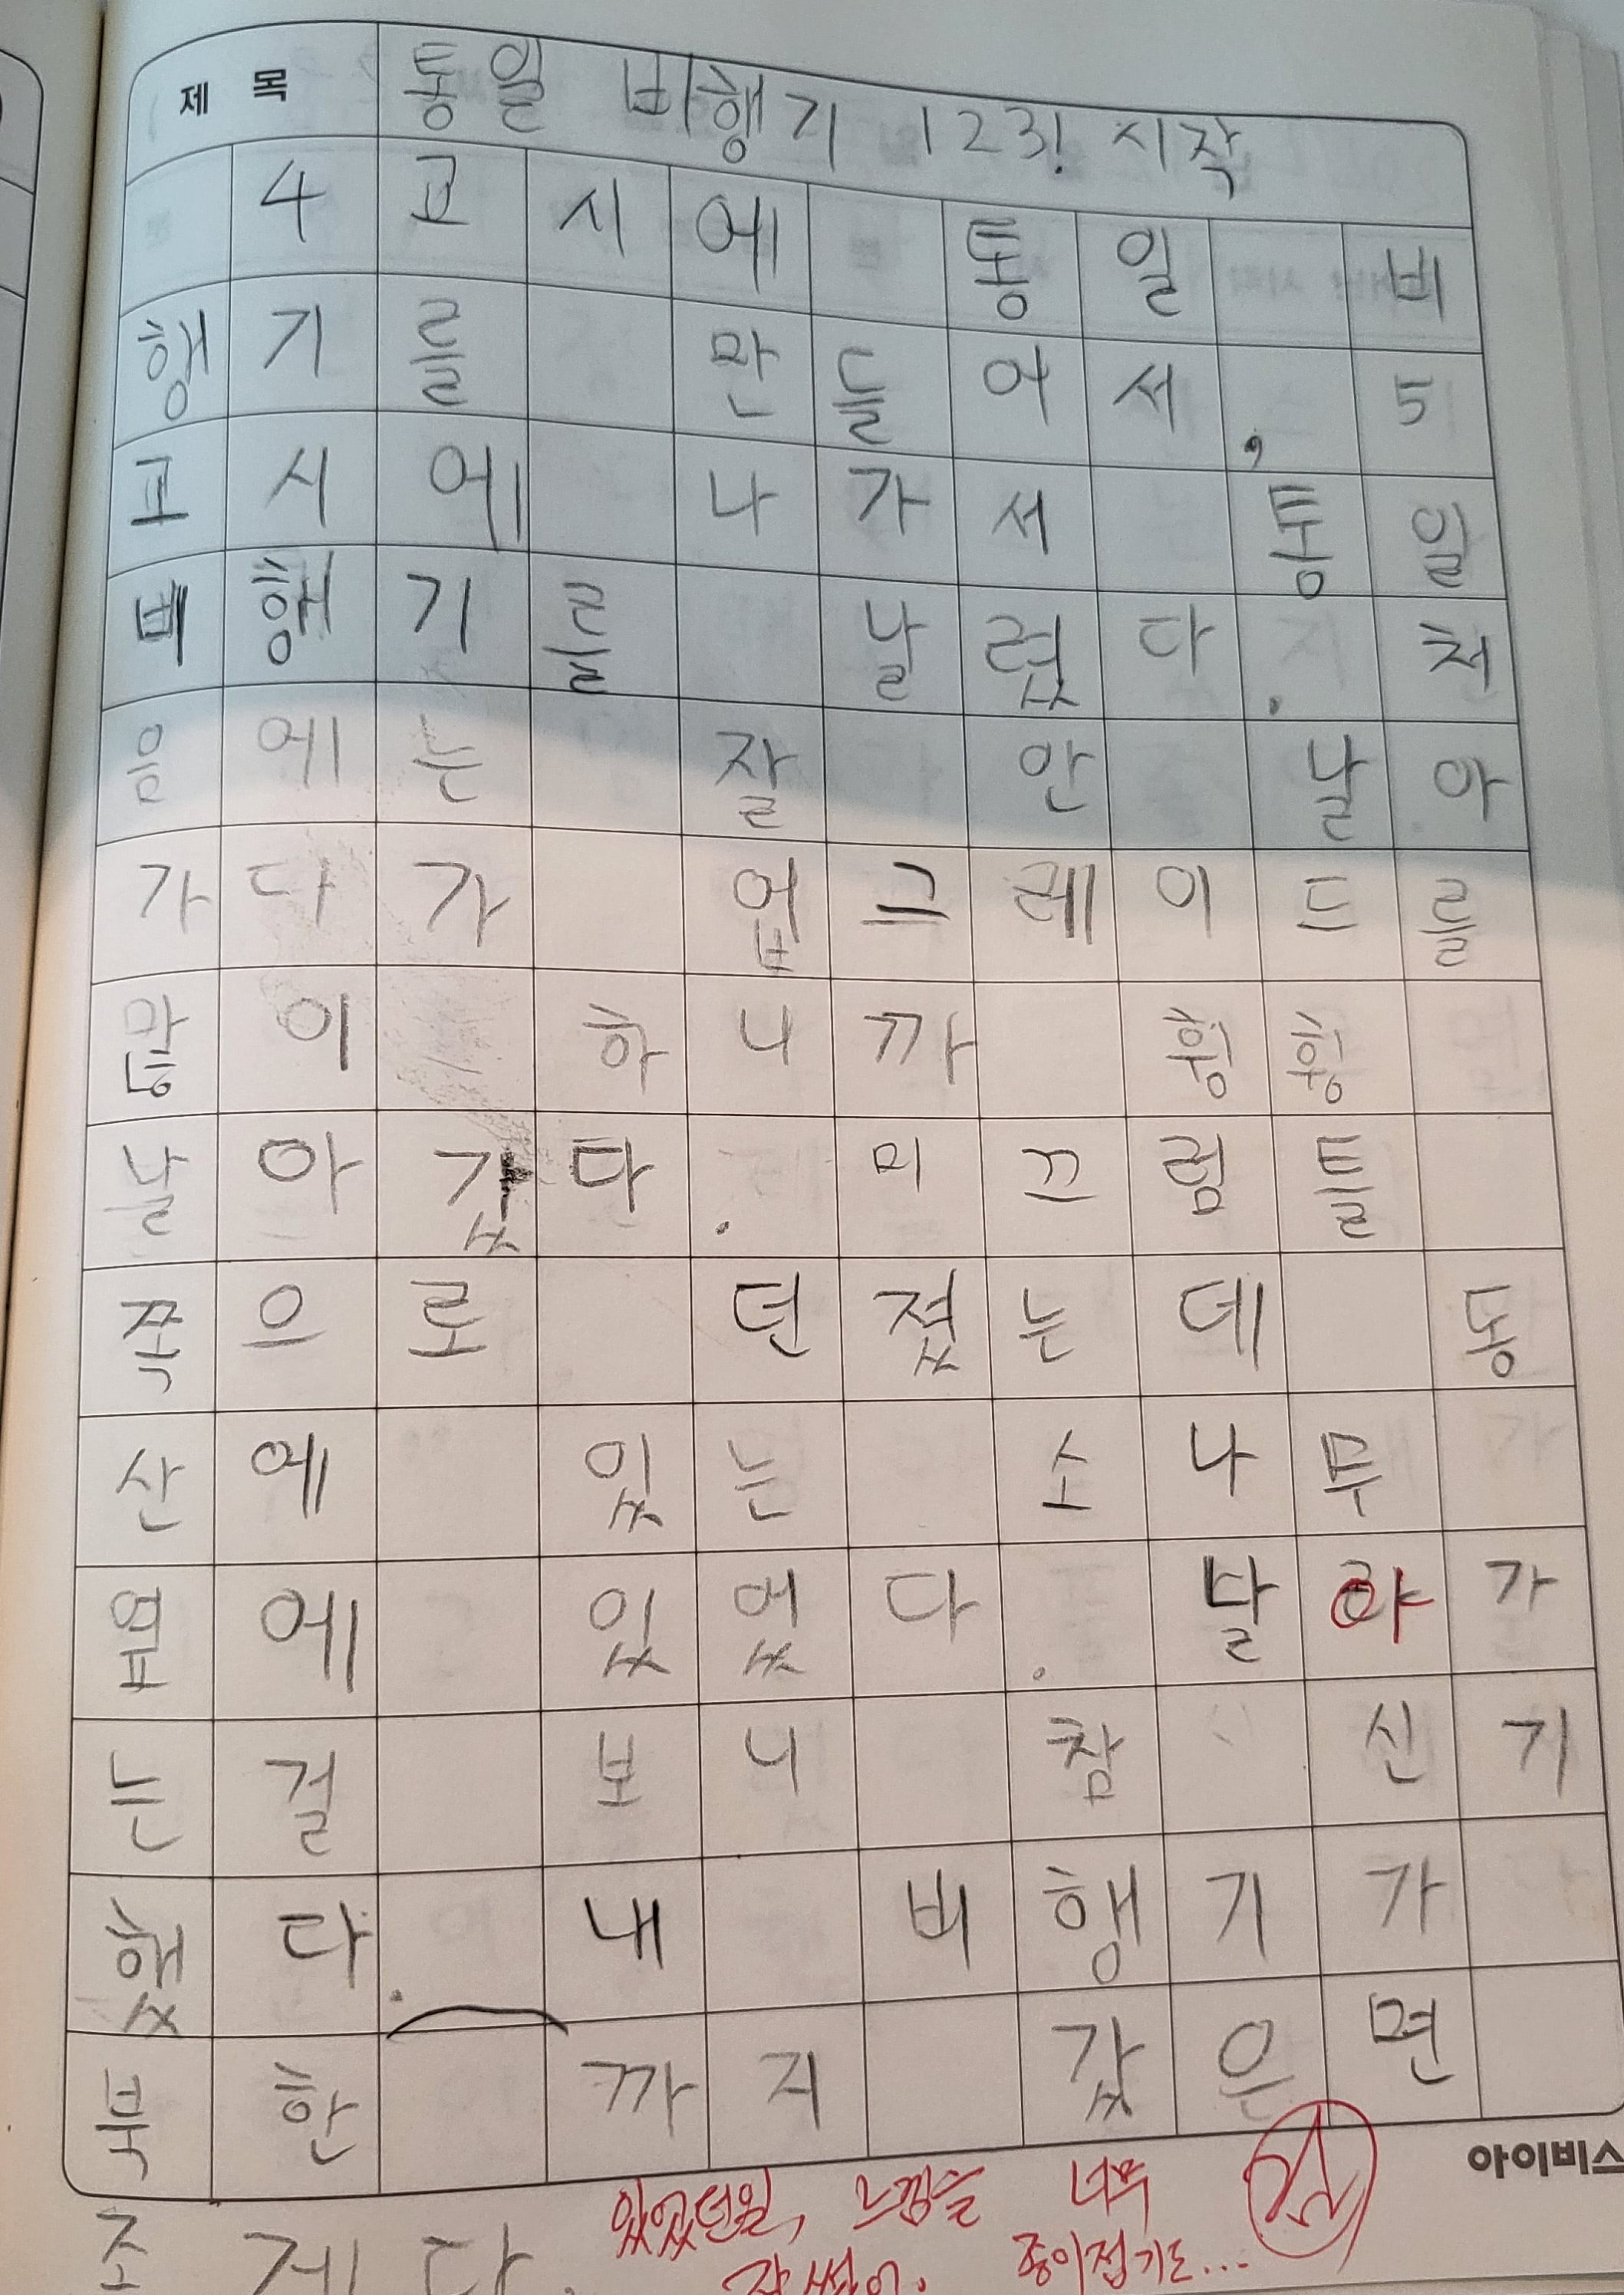 제 목 통일 비행기 123! 시작
4교시에 통일 비
행기를 만들어서, 5
교시에 나가서 통일
비행기를 날렸다. 처
음에는 잘 안 날아
가다가 업그레이드를
많이 하니까 휭휭
날아갔다. 미끄럼틀
쪽으로 던졌는데 동
산에 있는 소나무
옆에 있었다. 날아가
는 걸 보니 참 신기
했다. 내 비행기가
북한 까지 갔은면
조케다.
있었던일, 느낌을 너무
잘 썼어. 종이접기도...
아이비스